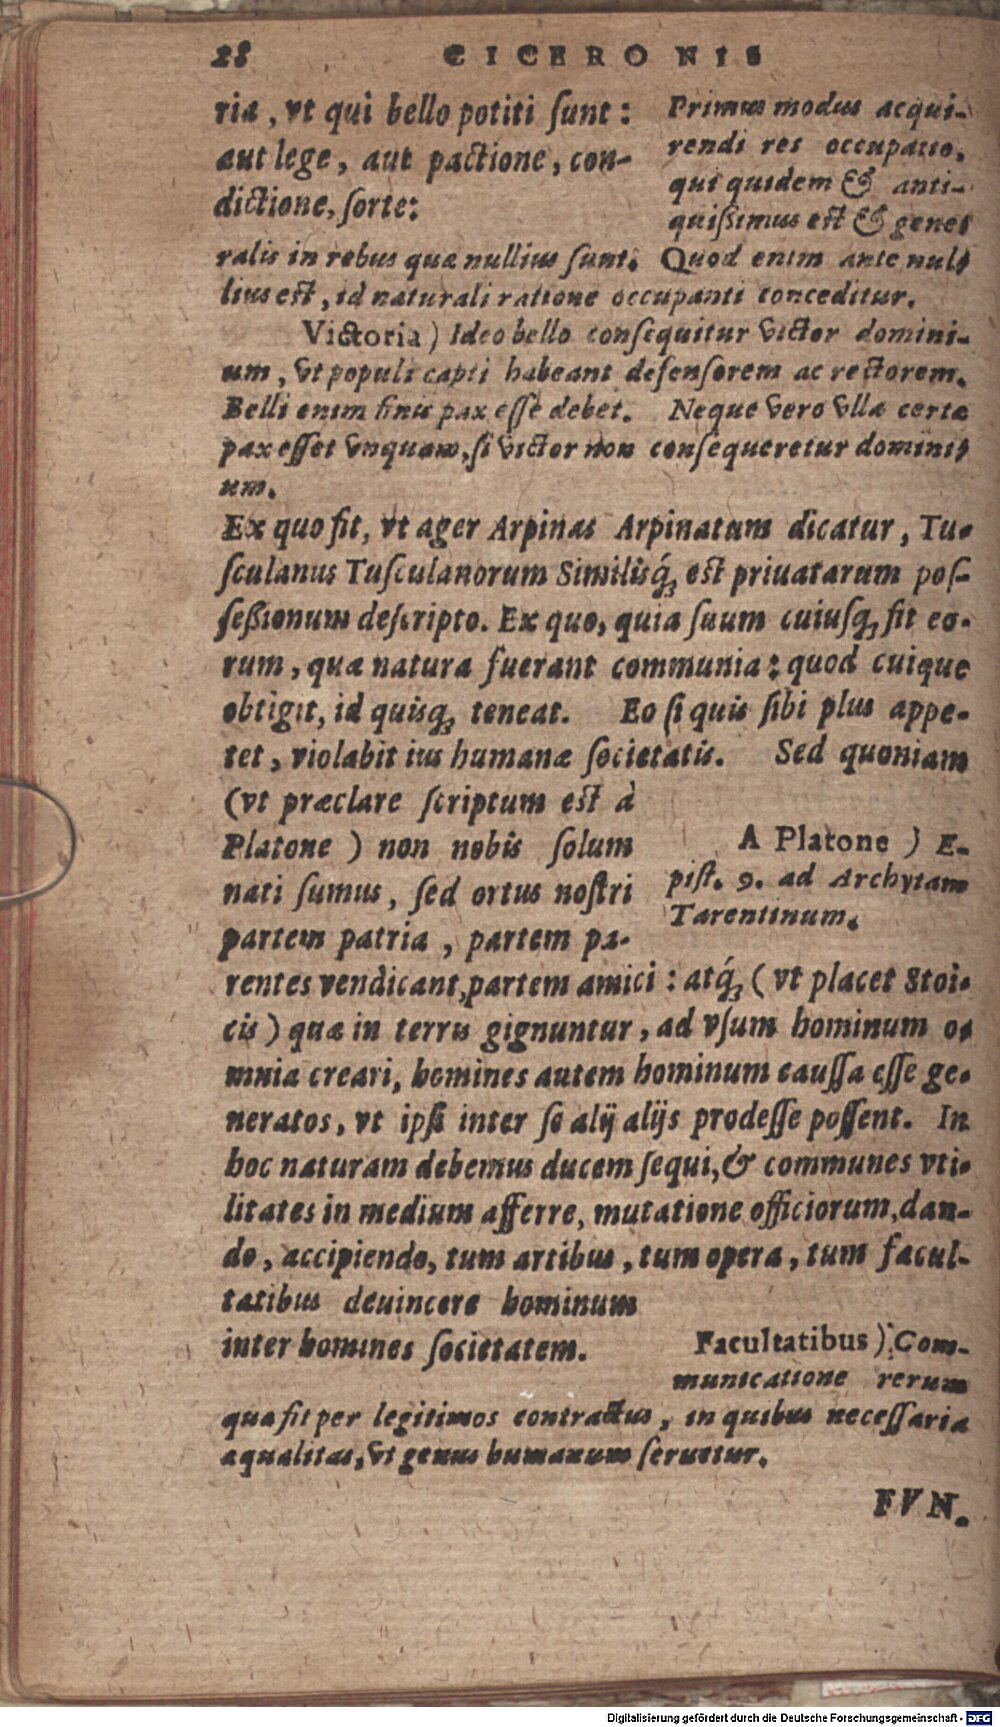 28 CICERONIS
ria, vt qui bello potiti ſunt:
aut lege, aut pactione, con-
dictione, ſorte:
Primus modus acqui-
rendi res occupatio,
qui quidem & anti-
quißimus est & gene-
ralis in rebus quæ nullius ſunt. Quod enim ante nul-
lius est, id naturali ratione occupanti conceditur.
Victoria) Ideo bello conſequitur victor domini-
um, vt populi capti habeant defenſorem ac rectorem.
Belli enim finis pax eſſe debet. Neque vero vlla certa
pax eſſet vnquam, ſi victor non conſequeretur domini-
um.
Ex quo fit, vt ager Arpinas Arpinatum dicatur, Tu-
ſculanus Tuſculanorum Similisq́; est priuatarum poſ-
ſeßionum deſcripto. Ex quo, quia ſuum cuiuſq; fit eo-
rum, quæ natura fuerant communia: quod cuique
obtigit, id quisq; teneat. Eo ſi quis ſibi plus appe-
tet, violabit ius humanæ ſocietatis. Sed quoniam
(vt præclare ſcriptum est à
Platone) non nobis ſolum
nati ſumus, ſed ortus noſtri
partem patria, partem pa-
A Platone) E-
piſt. 9. ad Archytam
Tarentinum.
rentes vendicant, partem amici: atq́; (vt placet Stoi-
cis) quæ in terris gignuntur, ad vſum hominum o-
mnia creari, homines autem hominum cauſſa eſſe ge-
neratos, vt ipſi inter ſe alij alijs prodeſſe poſſent. In
hoc naturam debemus ducem ſequi, & communes vti-
litates in medium afferre, mutatione officiorum, dan-
do, accipiendo, tum artibus, tum opera, tum facul-
tatibus deuincere hominum
inter homines ſocietatem.
Facultatibus) Com-
municatione rerum
quæ fit per legitimos contractus, in quibus neceſſaria
æqualitas, vt genus humanum ſeruetur.
FVN.
Digitalisierung gefördert durch die Deutsche Forschungsgemeinschaft - DFG